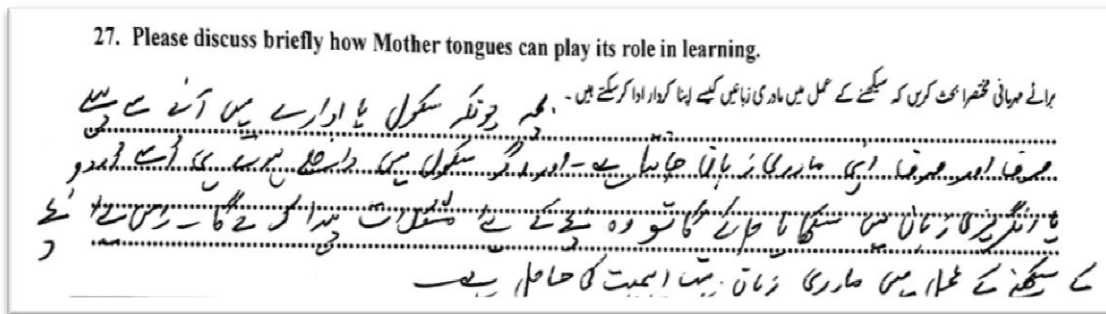 27. Please discuss briefly how Mother tongues can play its role in learning.
برائے مہربانی مختصرا بحث کریں کہ سیکھنے کے عمل میں مادری زبانیں کیسے اپنا کردار ادا کر سکتے ہیں۔
بچہ چونکہ سکول یا ادارے میں آنے سے پہلے
صرف اور صرف اپنی مادری زبان جانتا ہے۔ اور اگر سکول میں داخل ہوتے ہی اُسے اُردو
یا انگریزی زبان میں سکھایا جائے گا تو وہ بچے کے لئے مشکلات پیدا کرے گا۔ اس لئے بچے
کے سیکھنے کے عمل میں مادری زبان بہت اہمیت کی حامل ہے۔